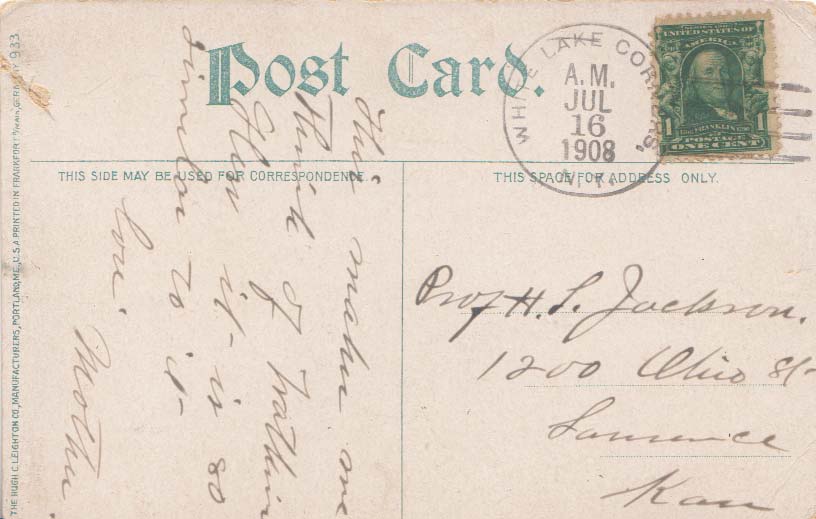 Post Card.
WHITE LAKE CORNERS,
A.M.
JUL
16
1908
N.Y.
SERIES 1902
UNITED STATES OF
AMERICA
1 1
FRANKLIN
POSTAGE
ONE CENT
THIS SIDE MAY BE USED FOR CORRESPONDENCE.
THIS SPACE FOR ADDRESS ONLY.
This makes me
Think of Watkin
Glen it is so
similar to it
love. Mother
Prof H. S. Jackson.
1200 Ohio St
Lawrence
Kan
THE HUGH C. LEIGHTON CO., MANUFACTURERS, PORTLAND, ME., U.S.A. PRINTED IN FRANKFORT o/MAIN, GERMANY 933